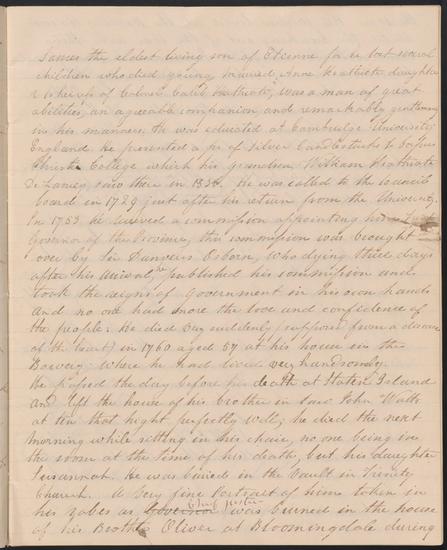 James the eldest living son of Etienne for he lost several
children who died young, married Anne Heathcote daughter
& heiress of Colonel Caleb Heathcote, was a man of great
abilities, an agreeable companion and remarkably gentleman
in his manners. He was educated at Cambridge University
England he presented a pr of Silver Candlesticks to Corpus
Christi College which his grandson William Heathcote
De Lancey saw there in 18. He was called to the council
board in 1729 just after his return from the University.
In 1753 he received a commission appointing him
Governor of the Province, this commission was brought
over by Sir Danvers Osborn, who dying three days
after his arrival, he published his commission and
took the reigns of Government in his own hands
and no one had more the love and confidence of
the people. He died very suddenly (supposed from a disease
of the heart) in 1760 aged 57 at his house in the
Bowery where he had lived very handsomely.
He passed the day before his death at Staten Island
and left the house of his brother in law John Watts
at ten that night perfectly well; he died the next
morning while sitting in his chair, no one being in
the room at the time of his death, but his daughter
Susannah. He was buried in the Vault in Trinity
Church. A very fine Portrait of him taken in
his robes as Governor Chief Justice was burned in the house
of his Brother Oliver at Bloomingdale during